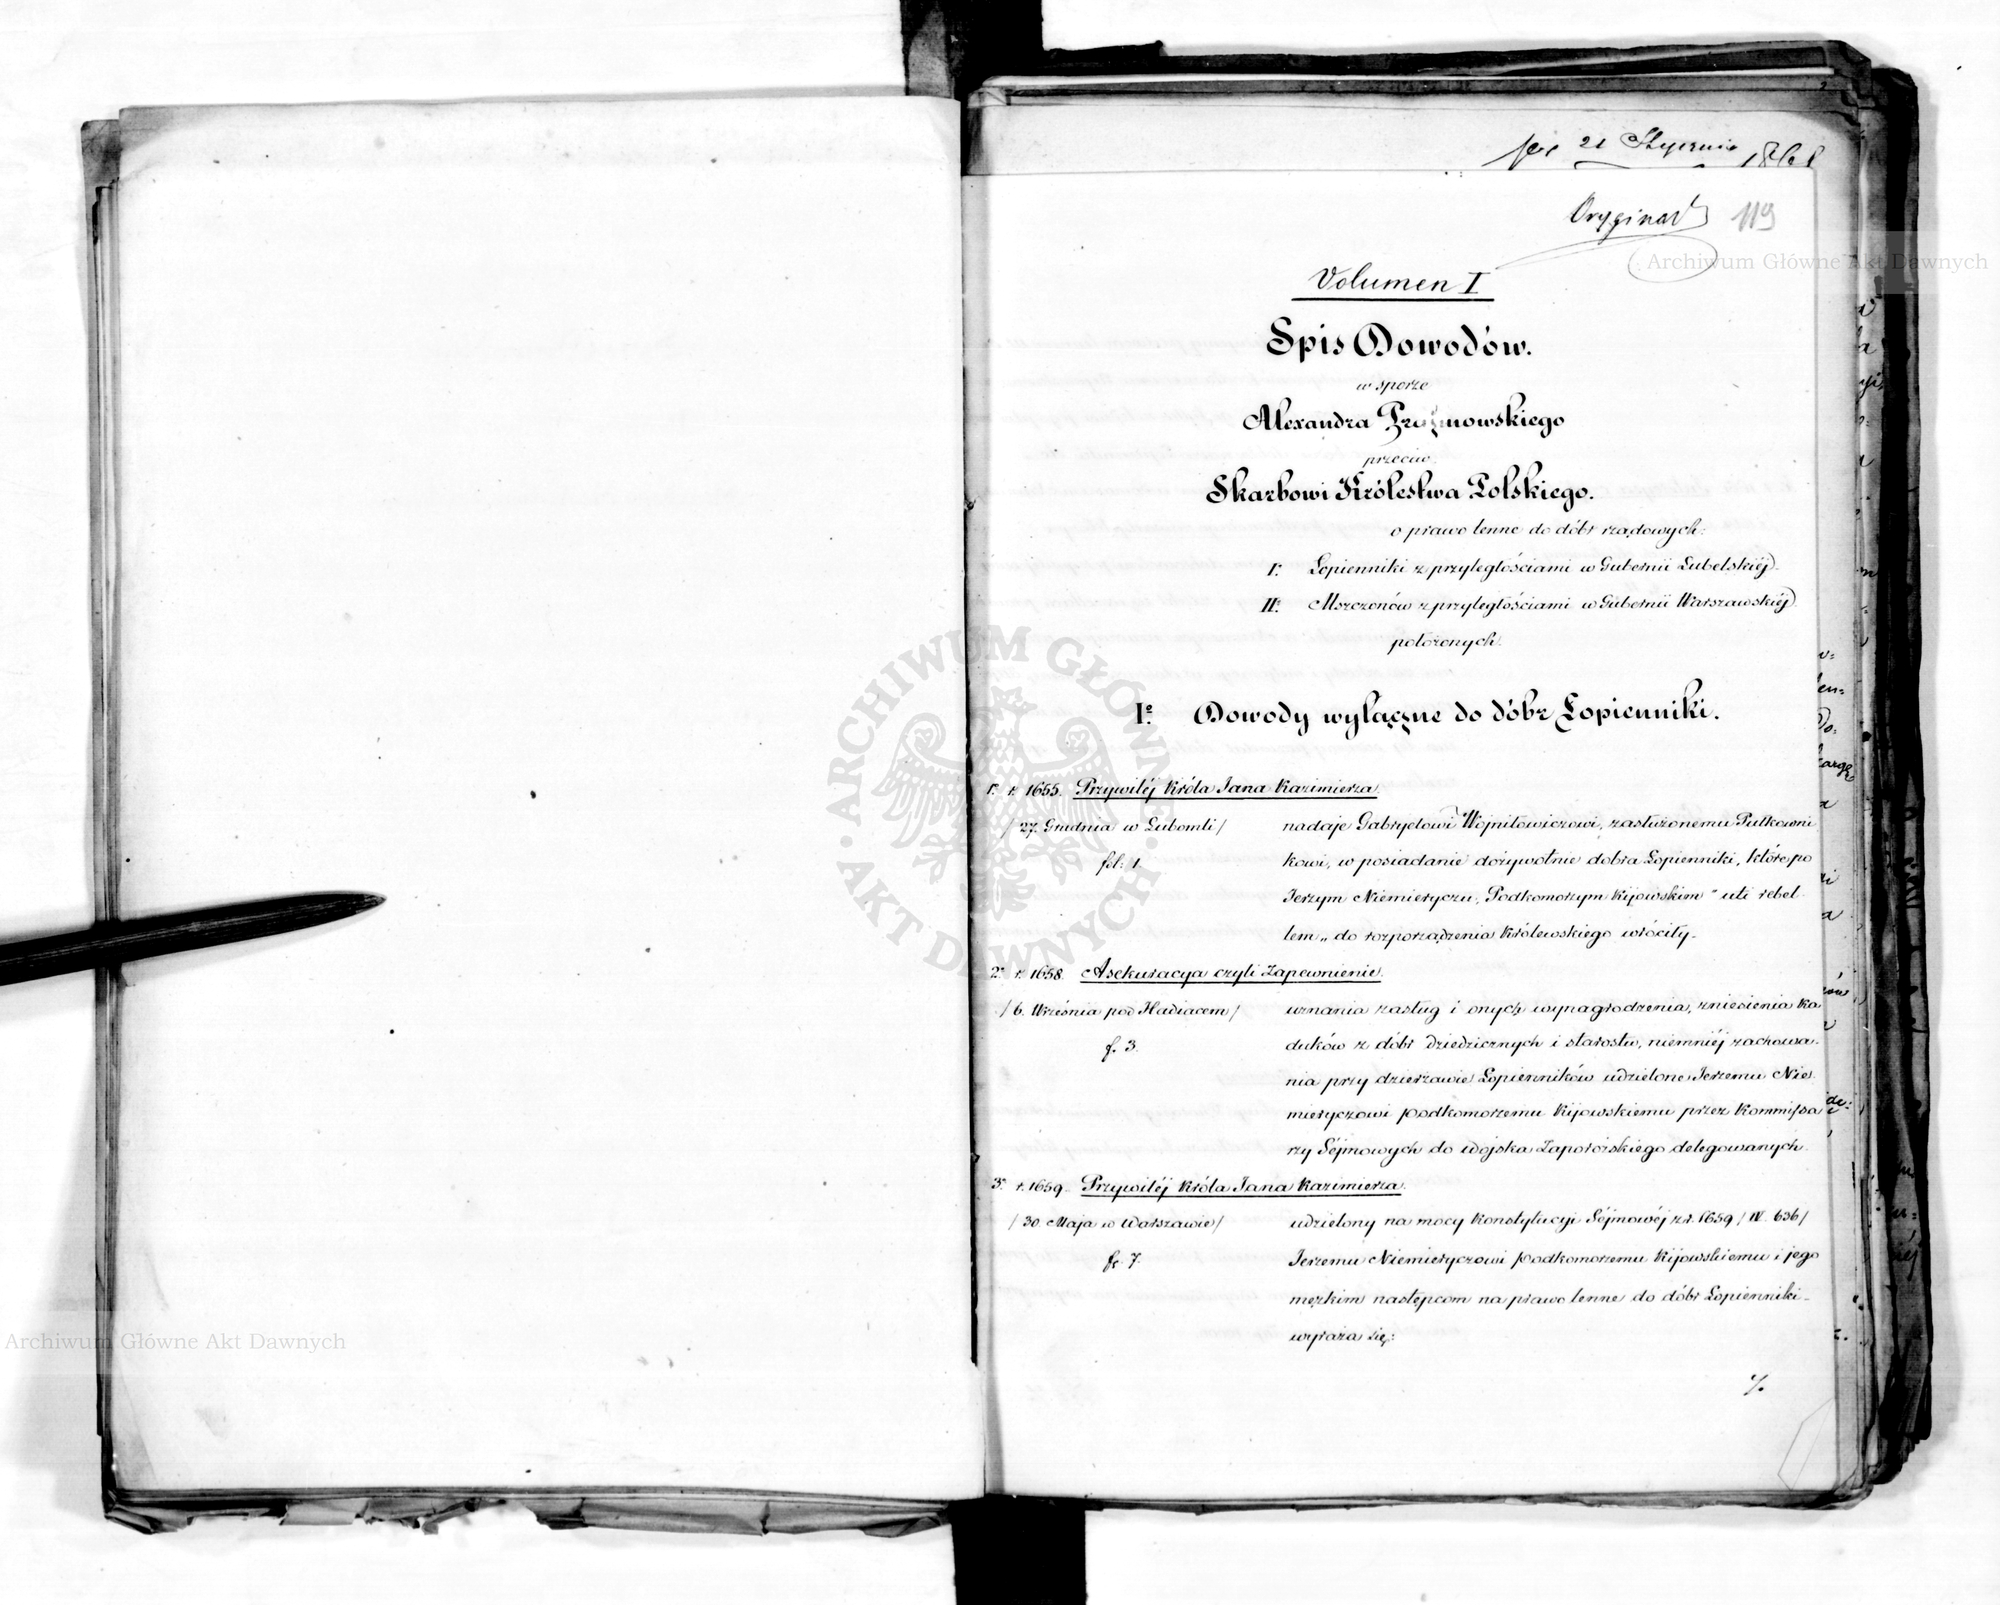 21 Stycznia
Oryginał 119
Archiwum Główne Akt Dawnych
Volumen I
Spis Dowodów.
w sporze
Alexandra
przeciw.
Skarbowi Królestwa Polskiego.
o prawo lenne do dóbr rządowych:
I. Łopienniki z przyległościami w Gubernii Lubelskiéj
II. Mszczonów z przyległościami w Gubernii Warszawskiéj
położonych.
Iº. Dowody wyłączne do dóbr Łopienniki.
1º. r. 1655. Przywiléj Króla Jana Kazimierza.
/ 27. Grudnia w Lubomli / nadaje Gabryelowi Wojniłowiczowi, zasłużonemu Pułkowni
fol: 1. kowi, w posiadanie dożywotnie dobra Łopienniki, które po
Jerzym Niemieryczu, Podkomorzym Kijowskim "uti rebel-
lem„ do rozporządzenia Królewskiego wróciły.
2º. r. 1658. Asekuracya czyli Zapewnienie.
/ 6. Września pod Hadiacem / uznania zasług i onych wynagrodzenia, zniesienia ka
f. 3. duków z dóbr dziedzicznych i starostw, niemniéj zachowa-
nia przy dzierżawie Łopienników udzielone Jerzemu Nie-
mieryczowi podkomorzemu Kijowskiemu przez Kommissa
rzy Séjmowych do wojska Zaporozskiego delegowanych.
3º. r. 1659. Przywiléj Króla Jana Kazimierza.
/ 30. Maja w Warszawie / udzielony na mocy Konstytucyi Séjmowéj z r. 1659 / IV. 636 /
f. 7. Jerzemu Niemieryczowi podkomorzemu Kijowskiemu i jego
męzkim następcom na prawo lenne do dóbr Łopienniki
wyraża się:
./.
ARCHIWUM GŁÓWNE AKT DAWNYCH
Archiwum Główne Akt Dawnych